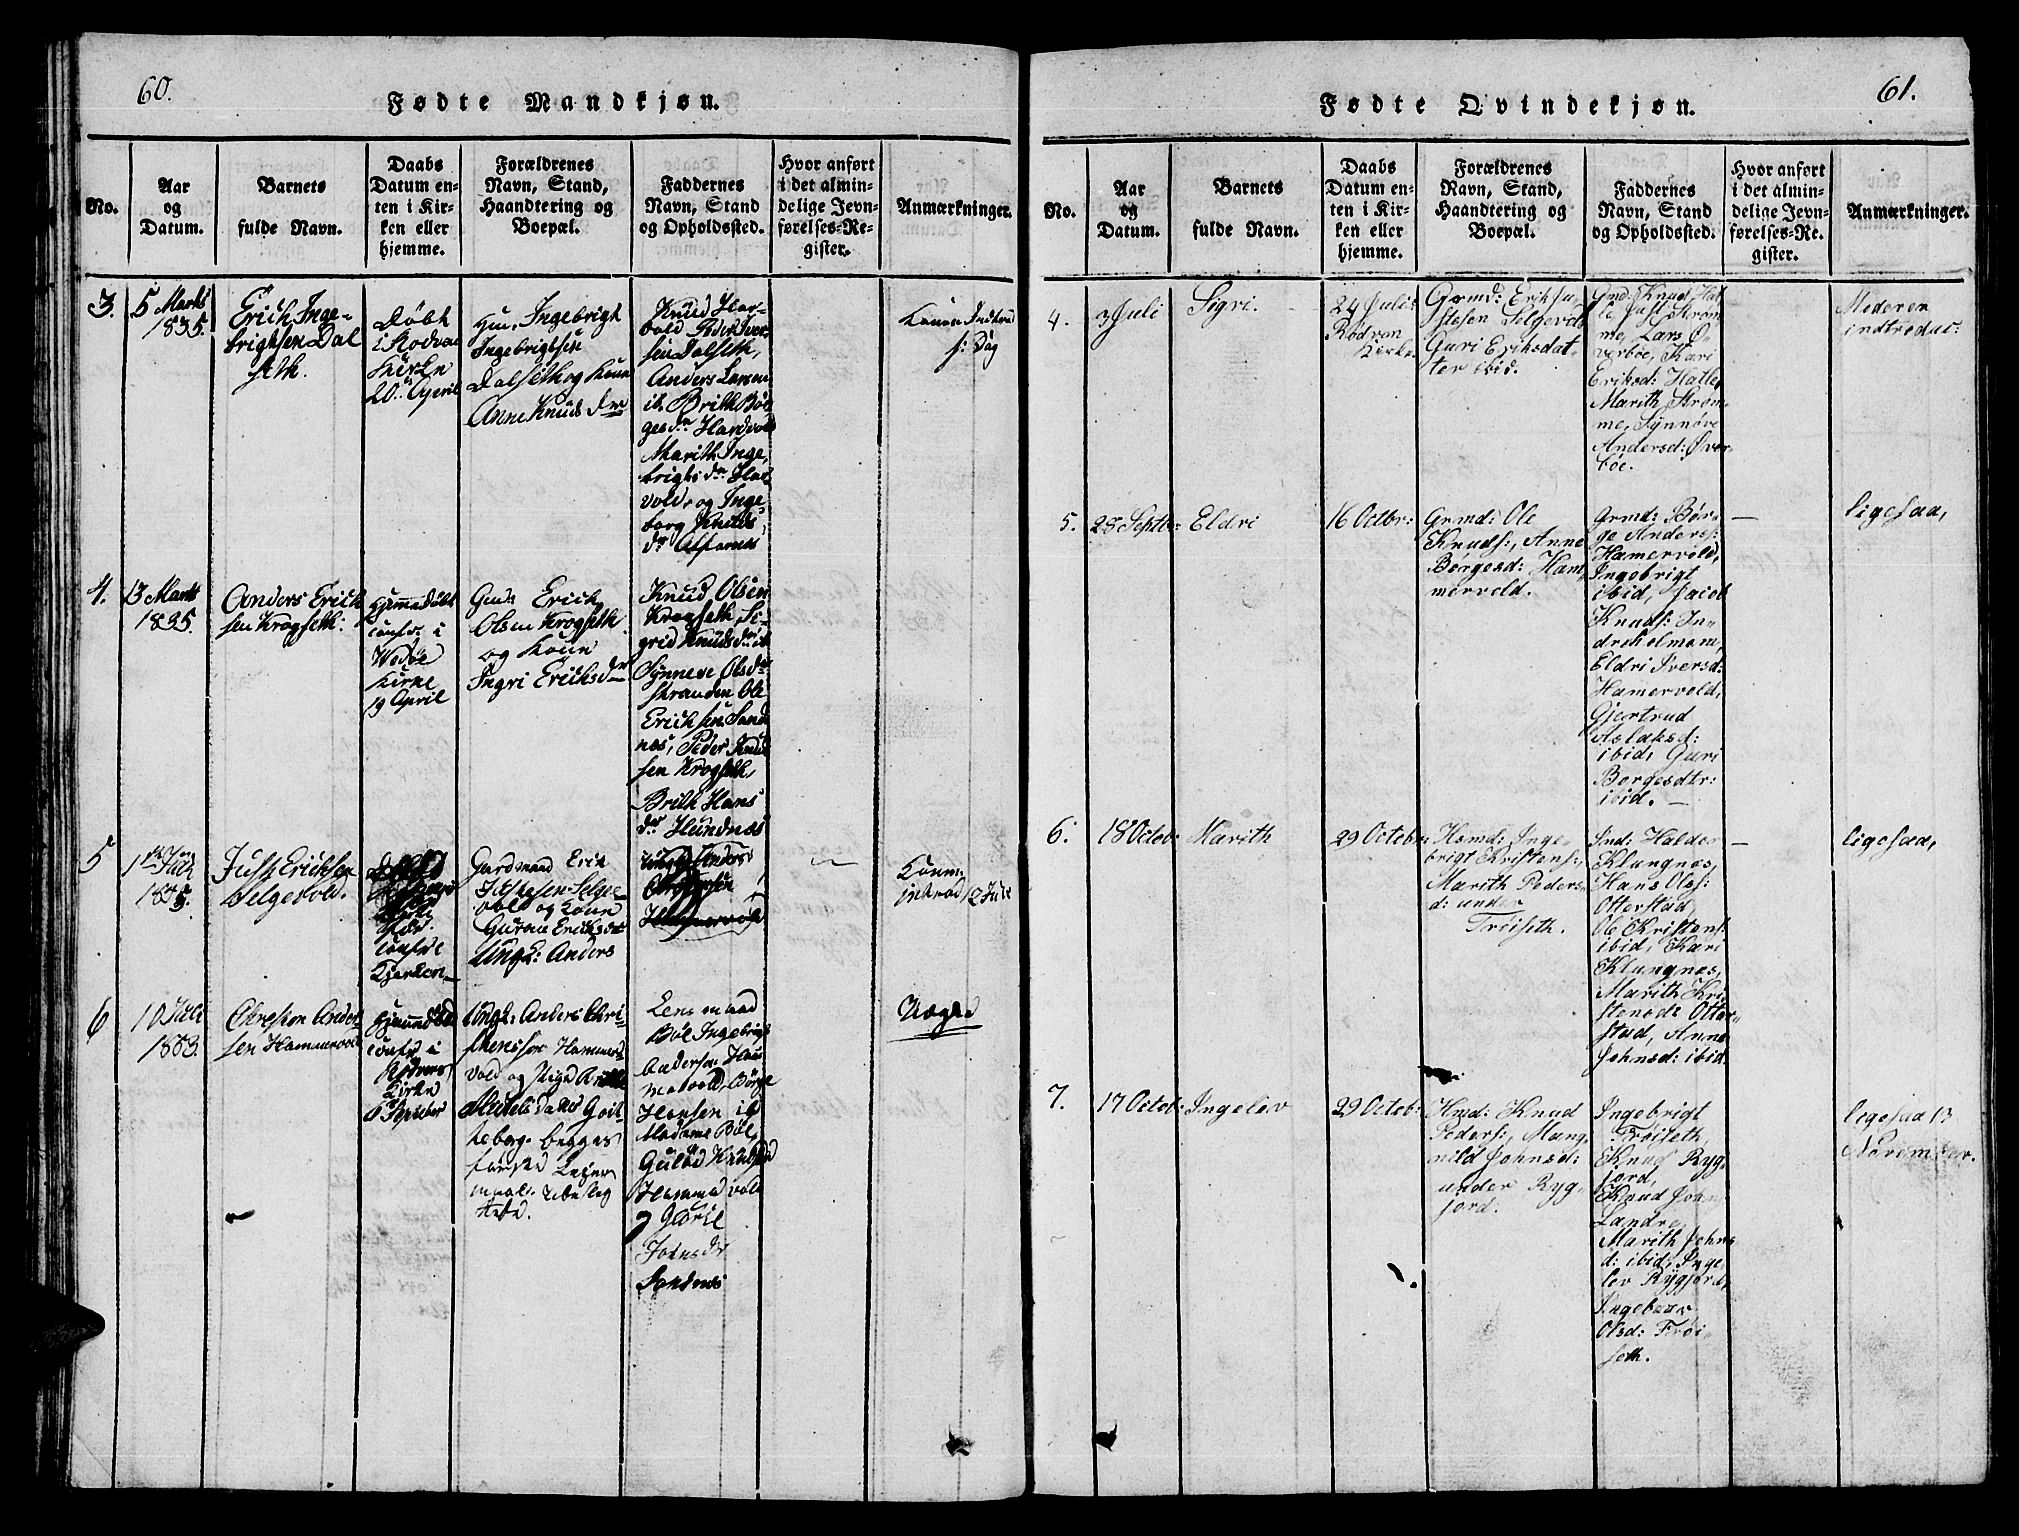 60.
Fødte Mandkjøn.
No.
Aar
og
Datum.
Barnets
fulde Navn.
Daabs
Datum en-
ten i Kir-
ken eller
hjemme.
Forældrenes
Navn, Stand,
Haandtering og
Boepæl.
Faddernes
Navn, Stand
og Opholdssted.
Hvor anført
i det almin-
delige Jevn-
førelses-Re-
gister.
Anmærkninger.
3.
5 Marts
1835.
Erich Inge-
brigtsen Dal
seth.
Døbt
i Rodven
Kirke
20. April
Ingebrigt
Ingebrigtsen
Dalseth og Kone
Anne Knuds dr
Knud Har-
vold Peder Iver
sen Dalseth,
Anders Larsen
ib. Brith Bør-
ges dr Hardvold
Marith Inge-
brigts dr Har
vold, og Inge-
borg Knuds
dr Alfarnes
Konen Indtraad
s: Dag
4.
13 Marts
1835.
Anders Erich
sen Krogseth.
Hjemmedøbt
confr. i
Wedøe
Kirke
19 April
Gmd. Erich
Olsen Krogseth
og Kone
Ingri Ericksdr
Knud Olsen
Krogseth, Si-
grid Knudsdr ib.
Synneve Olsdr
Stranden Ole
Ericksen Sand
næs, Peder Knud
sen Krogseth,
Brith Hans
dr Hundnæs
5
1835.
Just Ericksen
Selgevold.
confr.
Kjerken
Gaardmand Erik
Justesen Selge-
vold og Kone
Guroe Ericksdr
Ungk: Anders
Anders
Hammervold
Konen
intraad 12 Juli
6
10 Juli
1803.
Christen Ander
sen Hammervold
confr. i
Rodvens
Kirke
6 September
Ungk: Anders Chri-
stensen Hammer-
vold og Pigen
Mikkelsdatter
begges
første Leier
maal.
Lensmand
Bøe Ingebrigt
Andersen Ham
mervold, Børge
Hansen ib
Madame Bøe,
Hammervold
Sandnæs
Uægte
61.
Fødte Qvindekjøn.
No.
Aar
og
Datum.
Barnets
fulde Navn.
Daabs
Datum en-
ten i Kir-
ken eller
hjemme.
Forældrenes
Navn, Stand,
Haandtering og
Boepæl.
Faddernes
Navn, Stand
og Opholdssted.
Hvor anført
i det almin-
delige Jevn-
førelses-Re-
gister.
Anmærkninger.
4.
3 Juli
Sigri.
24 Juli:
Rodven
Kirke.
Grmd: Erik Ju-
stesen Selgevold
Guri Eriksdat-
ter ibid.
Gmd: Knud Hat-
le, Just Strøm-
me, Lars O-
verbøe, Kari
Eriksd: Hatle,
Marith Strøm-
me, Synnøve
Andersd: Over-
bøe.
Moderen
indtrædes:
5.
28 Septb:
Eldri
16 Octbr:
Grmd: Ole
Knuds:, Anne
Børgesd: Ham-
mervold.
Grmd: Bør-
ge Anders:
Hamervold,
Ingebrigt
ibid, Jacob
Knuds: In-
dreholmem,
Eldri Iversd:
Hamervold,
Gjertrud
Aslaksd:
ibid: Guri
Børgesdtr:
ibid. —
—
ligesaa,
6.
18 Octob:
Marith
29 Octobr:
Hsmd: Inge
brigt Kristens:,
Marith Peders
d: under
Trøiseth.
Ind: Haldor
Klungnes,
Hans Ols:
Otterstad,
Ole Kristens:
ibid, Kari
Klungnes,
Marith Kri-
stensd: Otter-
stad, Anne
Johnsd: ibid.
—
ligesaa,
7.
17 Octob:
Ingelev
29 Octob:
Hmd: Knud
Peders:, Mang-
nild Johnsd:
under Ryg-
jord.
Ingebrigt
Trøiseth,
Knud Ryg-
jord,
Knud John
Landre,
Marith Johns
d: ibid, Inge-
lev Rygjord,
Ingeborg
Olsd: Trøi-
seth.
ligesaa 13
November.